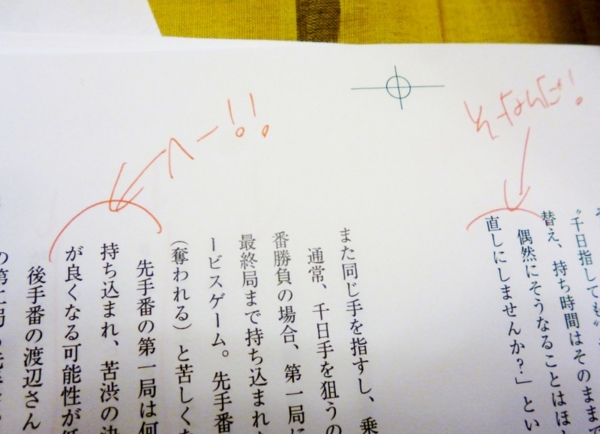 そーなんだ!
へー!!
〝千日指しても〟
替え、持ち時間はそのまま
偶然にそうなることはほ
直しにしませんか？」とい
また同じ手を指すし、乗
通常、千日手を狙うの
番勝負の場合、第一局に
最終局まで持ち込まれ
ービスゲーム。先手番
（奪われる）と苦しく
先手番の第一局は何
持ち込まれ、苦渋の決
が良くなる可能性が
後手番の渡辺さん
の第二局